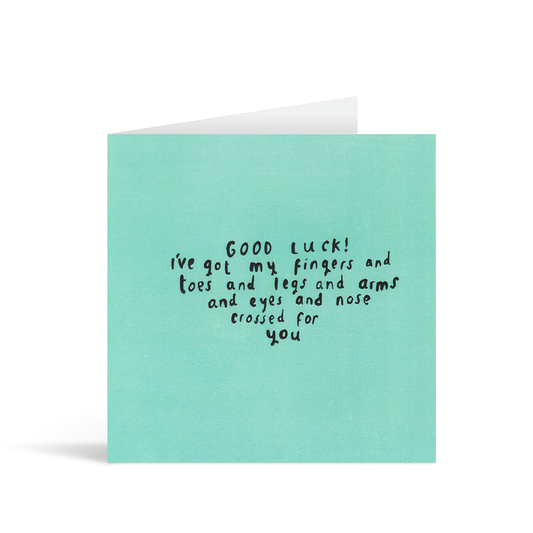 GOOD LUCK!
I've got my fingers and
toes and legs and arms
and eyes and nose
crossed for
you